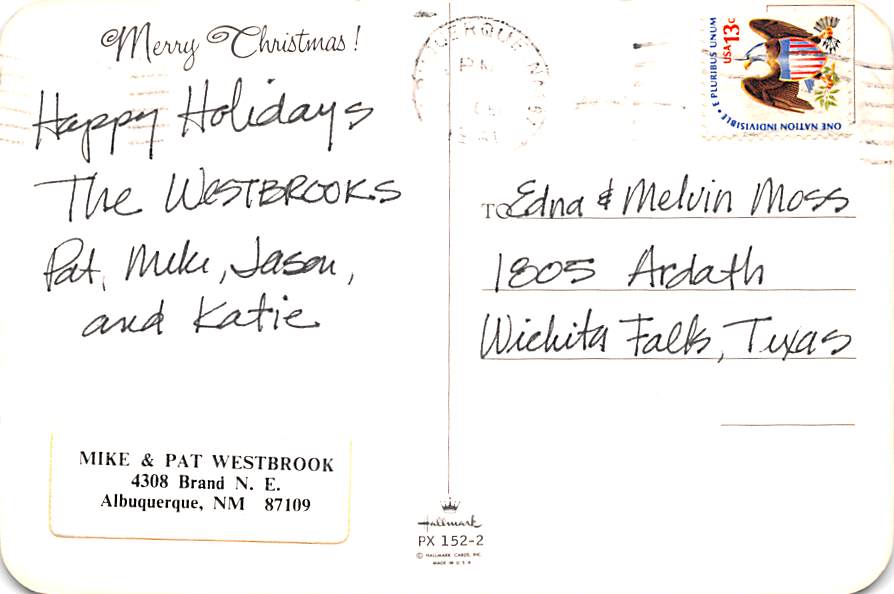 Merry Christmas!
Happy Holidays
The WESTBROOKS
Pat, Mike, Jason,
and Katie
MIKE & PAT WESTBROOK
4308 Brand N. E.
Albuquerque, NM 87109
PM
USA 13c
E PLURIBUS UNUM
ONE NATION INDIVISIBLE
TO Edna & Melvin Moss
1805 Ardath
Wichita Falls, Texas
Hallmark
PX 152-2
© HALLMARK CARDS, INC.
MADE IN U.S.A.